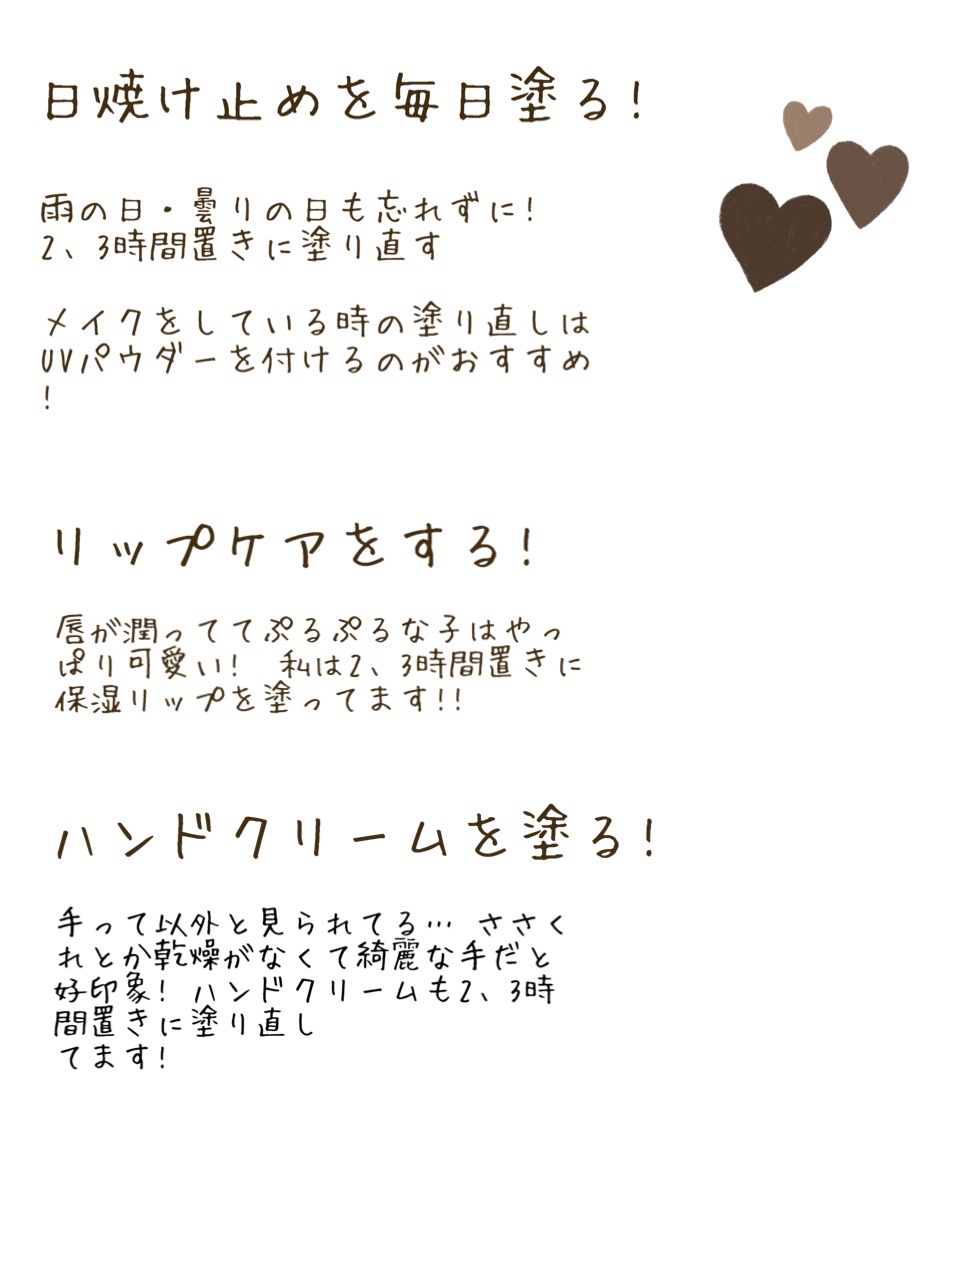 日焼け止めを毎日塗る!
雨の日・曇りの日も忘れずに!
2、3時間置きに塗り直す
メイクをしている時の塗り直しは
UVパウダーを付けるのがおすすめ
!
リップケアをする!
唇が潤っててぷるぷるな子はやっ
ぱり可愛い! 私は2、3時間置きに
保湿リップを塗ってます!!
ハンドクリームを塗る!
手って以外と見られてる… ささく
れとか乾燥がなくて綺麗な手だと
好印象! ハンドクリームも2、3時
間置きに塗り直し
てます!